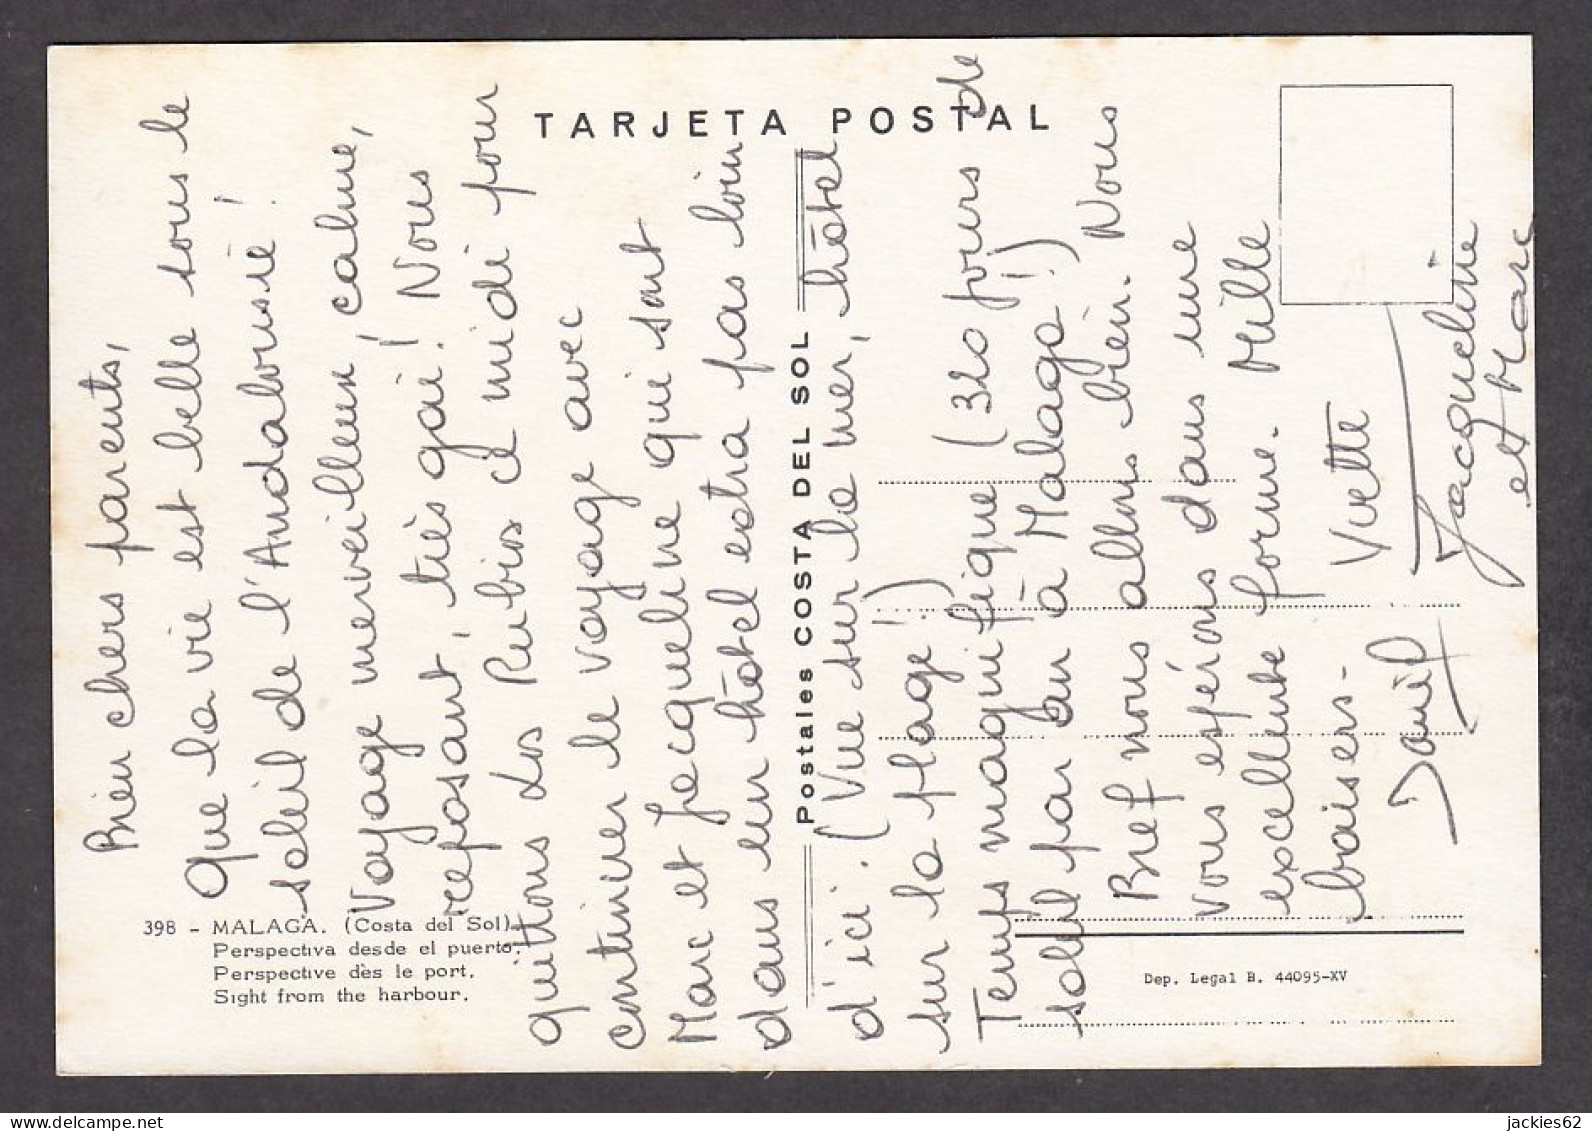 TARJETA POSTAL
Bien chers parents,
Que la vie est belle sous le
soleil de l'Andalousie !
Voyage merveilleux, calme,
reposant, très gai ! Nous
quittons Los Rubios ce midi pour
continuer le voyage avec
Marc et Jacqueline qui sont
dans un hôtel extra pas loin
d'ici. (Vue sur la mer, hôtel
sur la plage !!)
Temps magnifique (320 jours de
soleil par an à Malaga !)
Bref nous allons bien. Nous
vous espérons dans une
excellente forme. Mille
baisers-
Yvette
Daniel
Jacqueline
et Marc
Postales COSTA DEL SOL
398 - MALAGA. (Costa del Sol).
Perspectiva desde el puerto.
Perspective dès le port.
Sight from the harbour.
Dep. Legal B. 44095-XV
delcampe.net
jackies62